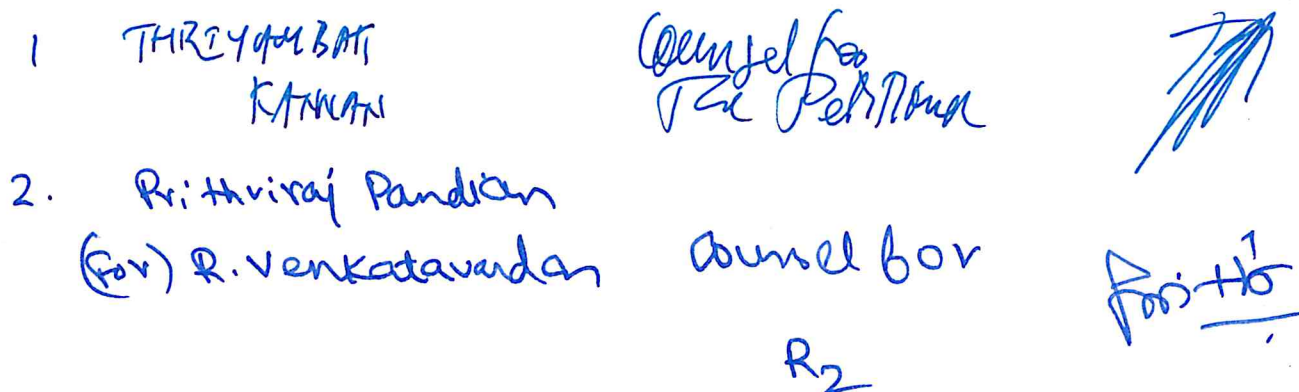 1 THRIYAMBAK Counsel for
KANNAN The Petitioner
2. Prithviraj Pandian
(For) R. Venkatavardan Counsel for
R2